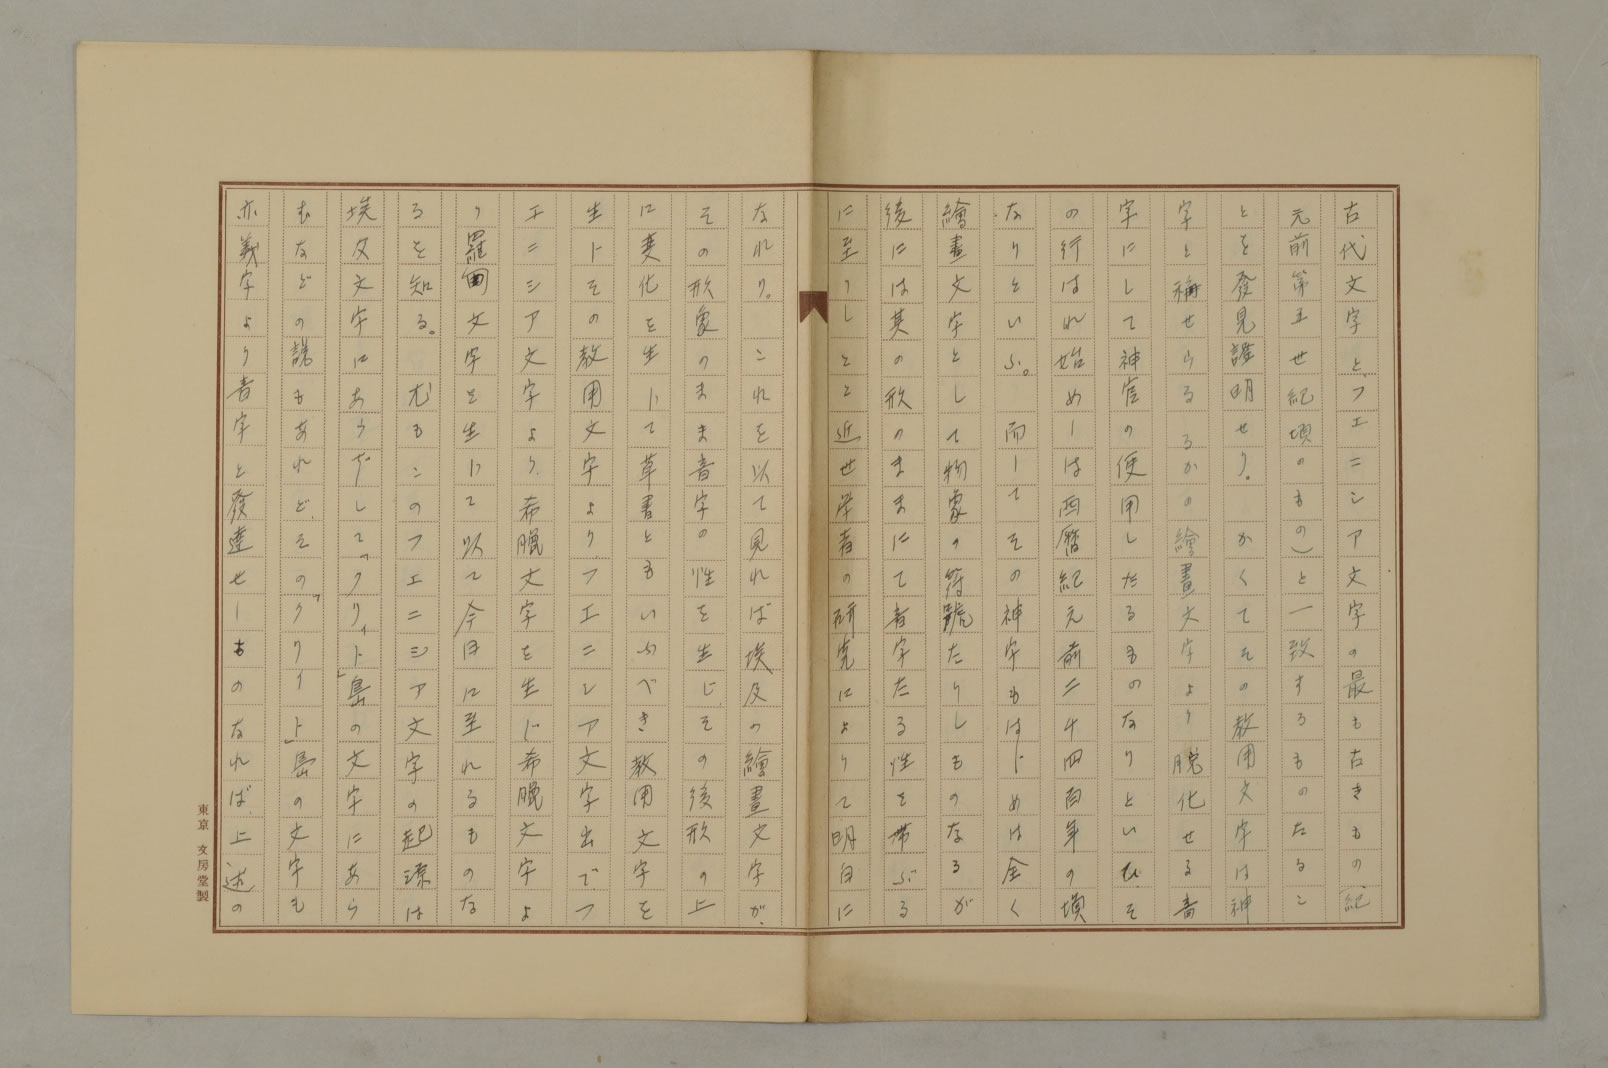 古代文字と、フエニシア文字の最も古きもの(紀
元前第五世紀頃のもの)と一致するものたるこ
とを發見證明せり。かくてその教用文字は神
字と稱せらるるかの繪畫文字より脱化せる書
字にして神官の使用したるものなりといひ、そ
の行はれ始めしは西暦紀元前二千四百年の頃
なりといふ。而してその神字もはじめは全く
繪畫文字として物象の符號たりしものなるが
後には其の形のままにて音字たる性を帶ぶる
に至りしこと近世学者の研究によりて明白に
なれり。これを以て見れば埃及の繪畫文字が、
その形象のまま音字の性を生じ、その後形の上
に変化を生じて草書ともいふべき教用文字を
生じその教用文字よりフエニシア文字出でフ
エニシア文字より、希臘文字を生じ希臘文字よ
り羅甸文字を生じて以て今日に至れるものな
るを知る。尤もこのフエニシア文字の起源は
埃及文字にあらずして「クリイト」島の文字にあら
むなどの説もあれど、その「クリイト」島の文字も
亦義字より音字と發達せしものなれば、上述の
東京 文房堂製